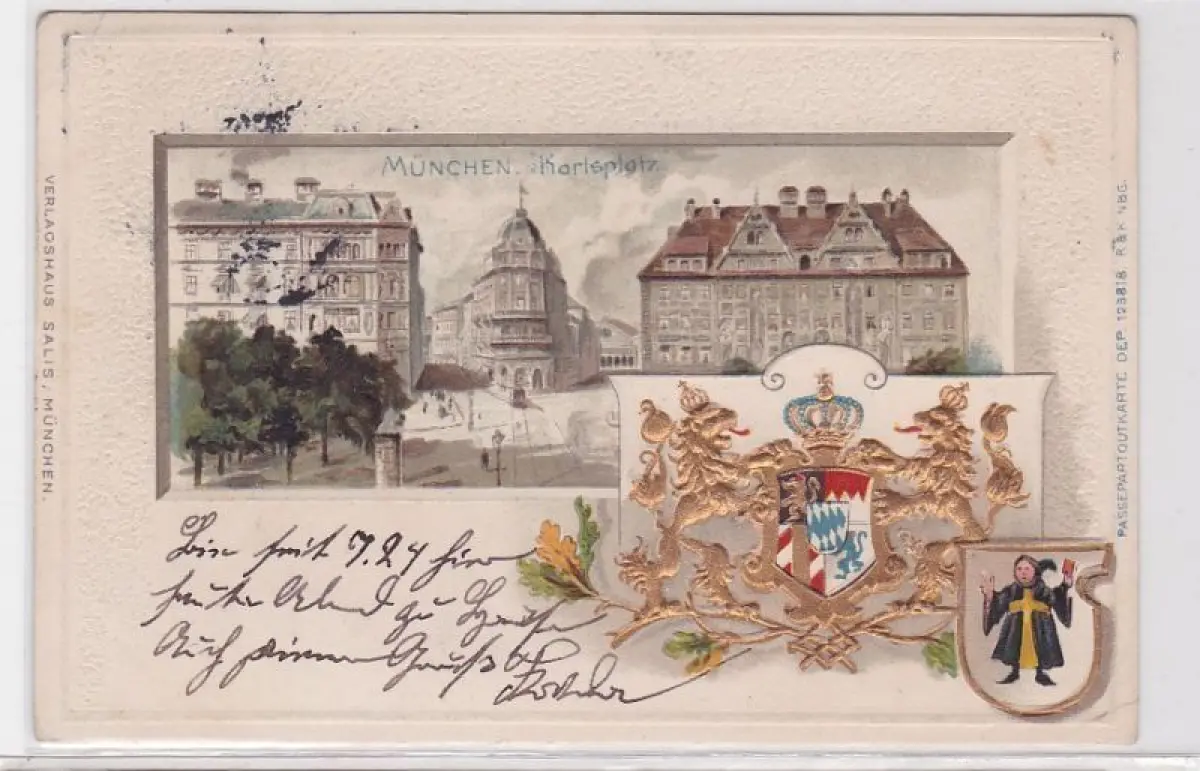 MÜNCHEN. Karlsplatz.
VERLAGSHAUS SALIS, MÜNCHEN.
PASSEPARTOUTKARTE DEP 123818 R&K NBG.
Bin seit 7.24 hier
heute Abend zu Hause
Auch einen Gruß